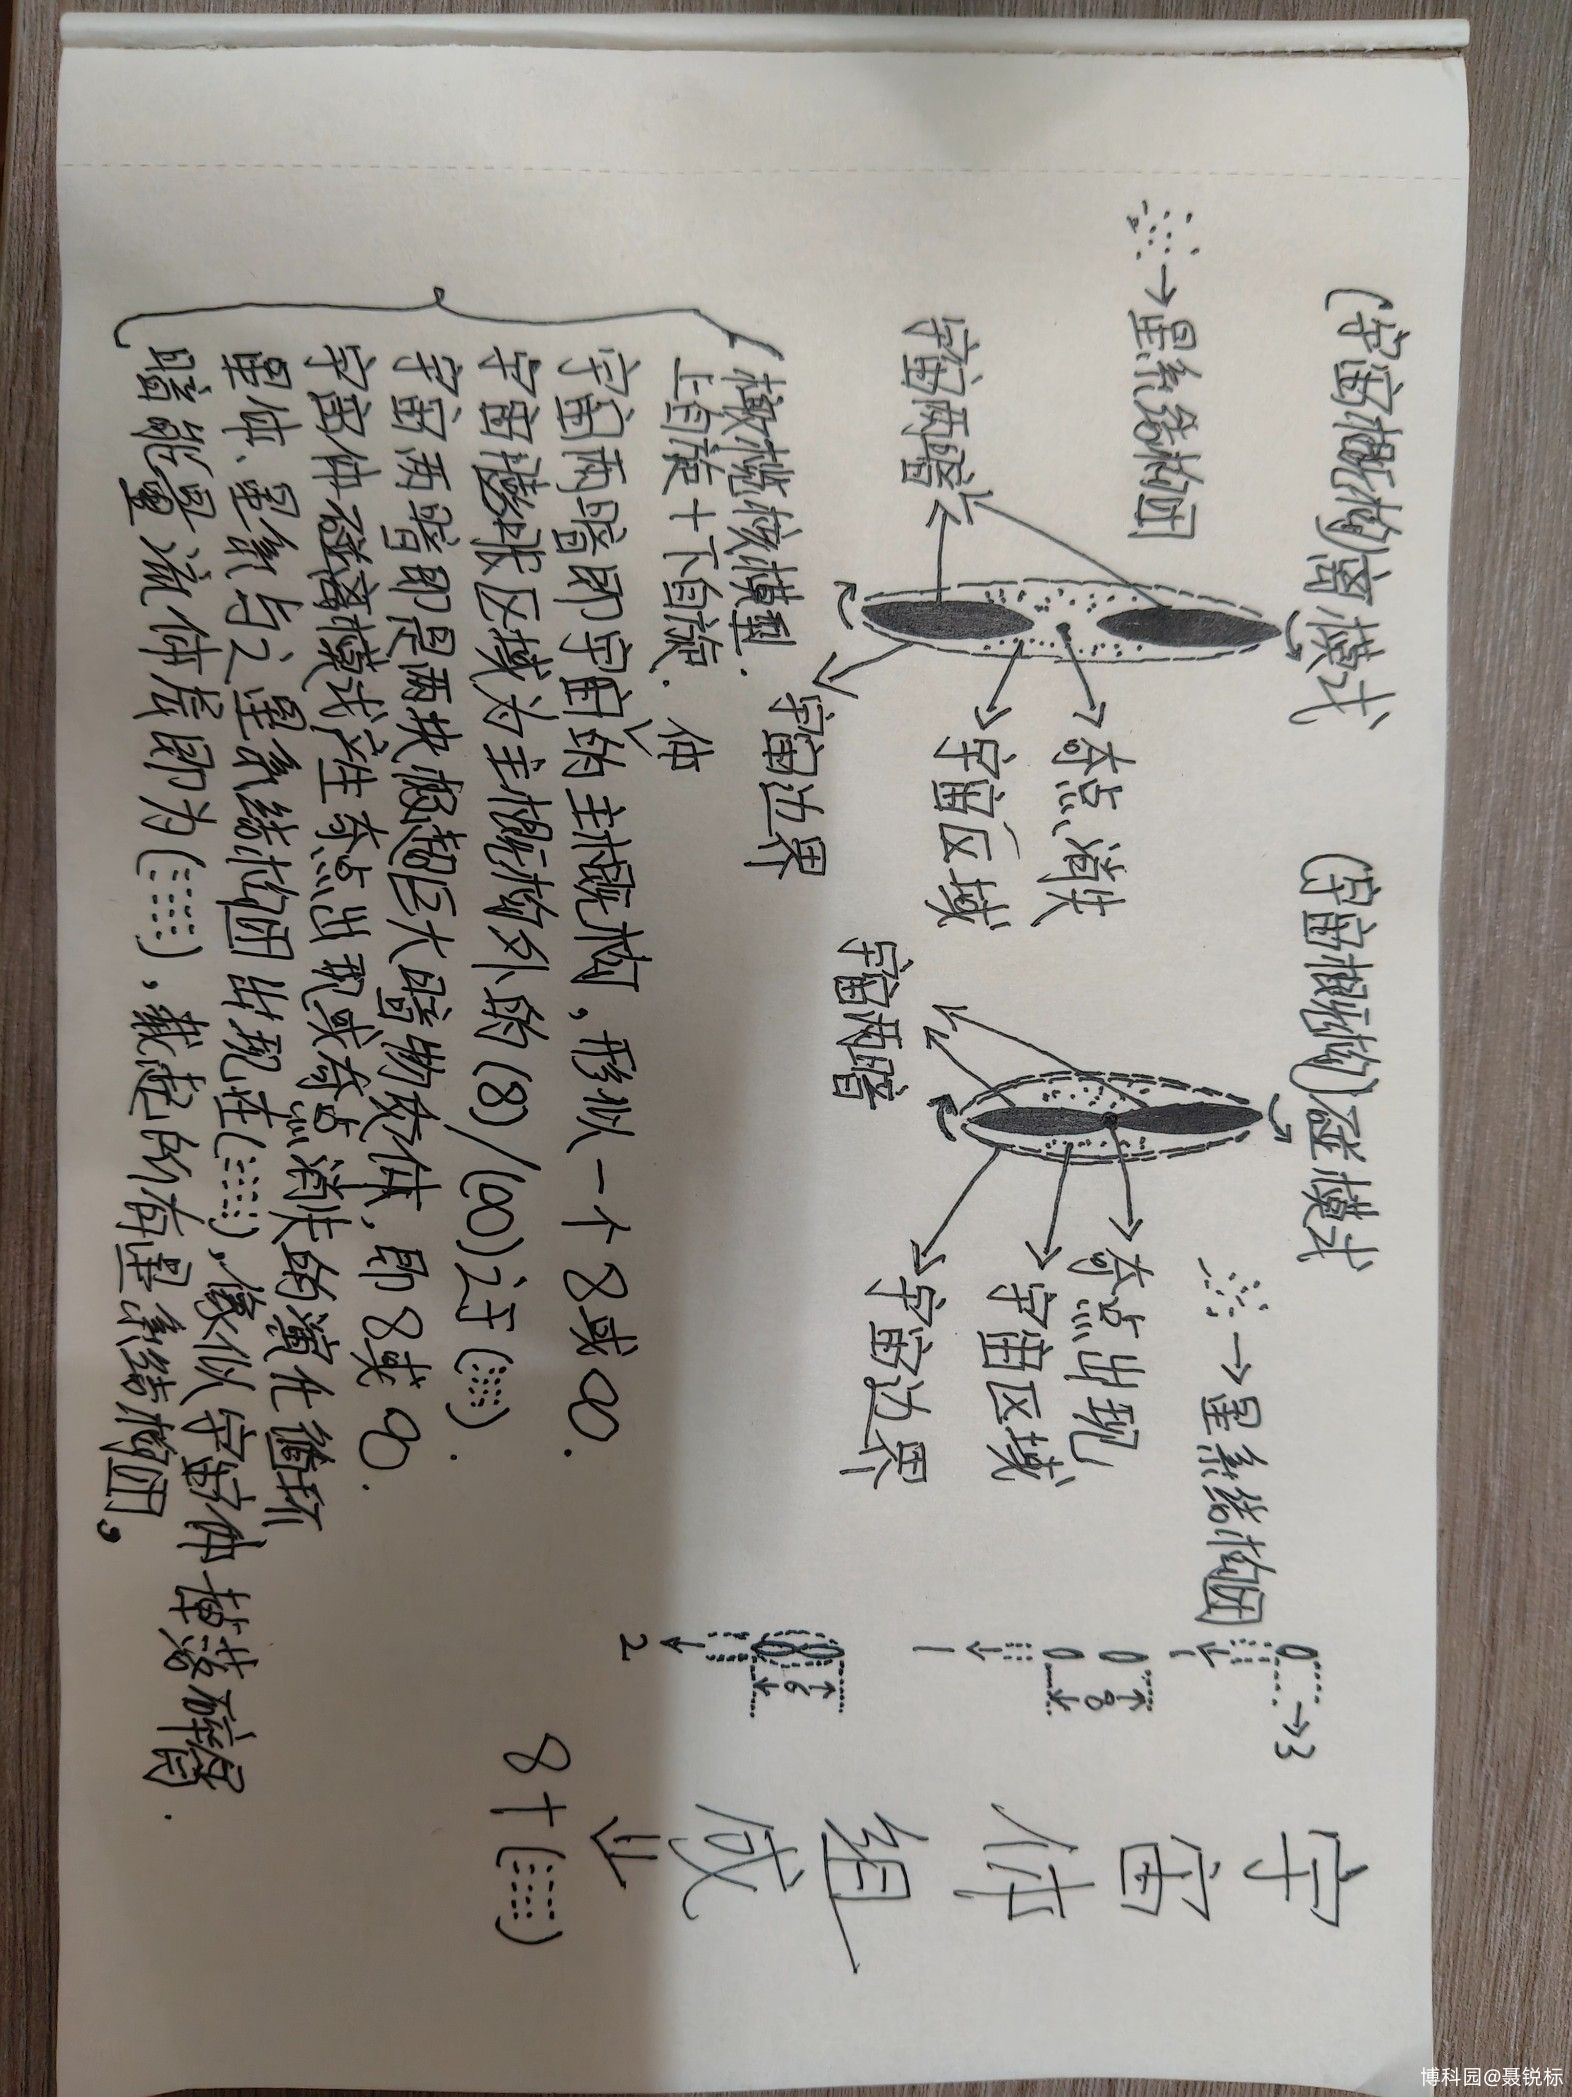 (宇宙概构)离模式
(宇宙概构)碰模式
→星系结构团
→星系结构团
宇宙两暗
奇点消失
宇宙区域
宇宙边界
宇宙两暗
奇点出现
宇宙区域
宇宙边界
→3
1
8
1
6
2
宇宙体组成
8+(::::)
(橄榄核模型.
上自旋+下自旋.
宇宙两暗即宇宙体的主概构,形似一个8或∞.
宇宙膨胀区域为主概构外的(8)/(∞)之于(::::).
宇宙两暗即是两块极超巨大暗物质体,即8或∞.
宇宙体碰离模式产生奇点出现或奇点消失的演化循环
星体、星系与之星系结构团出现在(::::),像似宇宙体掉落碎屑.
暗能量流体层即为(::::),载起的有星系结构团,
博科园@聂锐标